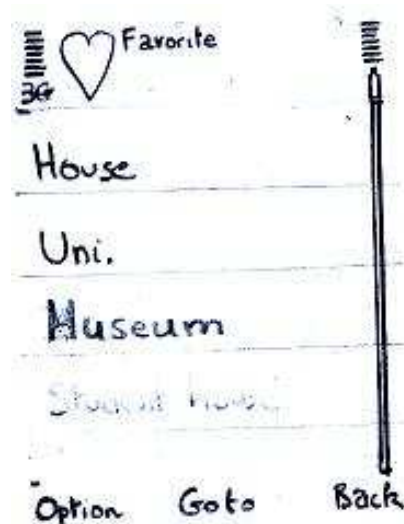 Favorite
3G
House
Uni.
Museum
Student House
Option Goto Back